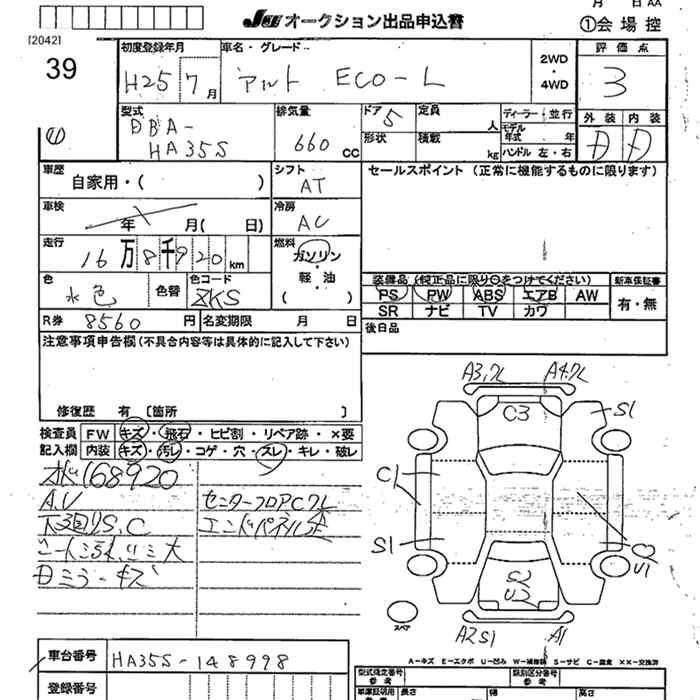 月 日 AA
JU オークション出品申込書 ①会場控
[2042]
39
初度登録年月 車名・グレード 2WD・4WD 評価点
H25 7月 アルト ECO-L 3
型式 排気量 ドア 定員 人 ディーラー・並行 外装 内装
DBA-HA35S 660cc 5 形状 積載 kg モデル年式 年 ハンドル 左・右 D D
車歴 シフト セールスポイント(正常に機能するものに限ります)
自家用・( ) AT
車検 冷房
年 月( 日) AC
走行 燃料
16万8千920km ガソリン・軽・油 ( )
色 色コード 装備品(純正品に限り○をつけてください) 新車保証書
水色 色替 ZKS PS PW ABS エアB AW 有・無
SR ナビ TV カワ
R券 8560円 名変期限 月 日 後日品
注意事項申告欄(不具合内容等は具体的に記入して下さい)
修復歴 有 〔箇所 〕
検査員 FW キズ・飛石・ヒビ割・リペア跡・×要
記入欄 内装 キズ・汚レ・コゲ・穴・スレ・キレ・破レ
168920
A.U センターフロアCクレ
下廻りS.C エンドパネル歪
シート
ミラーキズ
A3,クレ A4,クレ
C3
S1
C1
S1
U1
S2
U2
A2 S1 A1
スペア
A-キズ E-エクボ U-凹み W-補修跡 S-サビ C-腐食 XX-交換済
車台番号 HA35S-148998 型式指定番号 参考 類別区分番号 参考
登録番号 車庫証明用 参考 長さ 幅 高さ